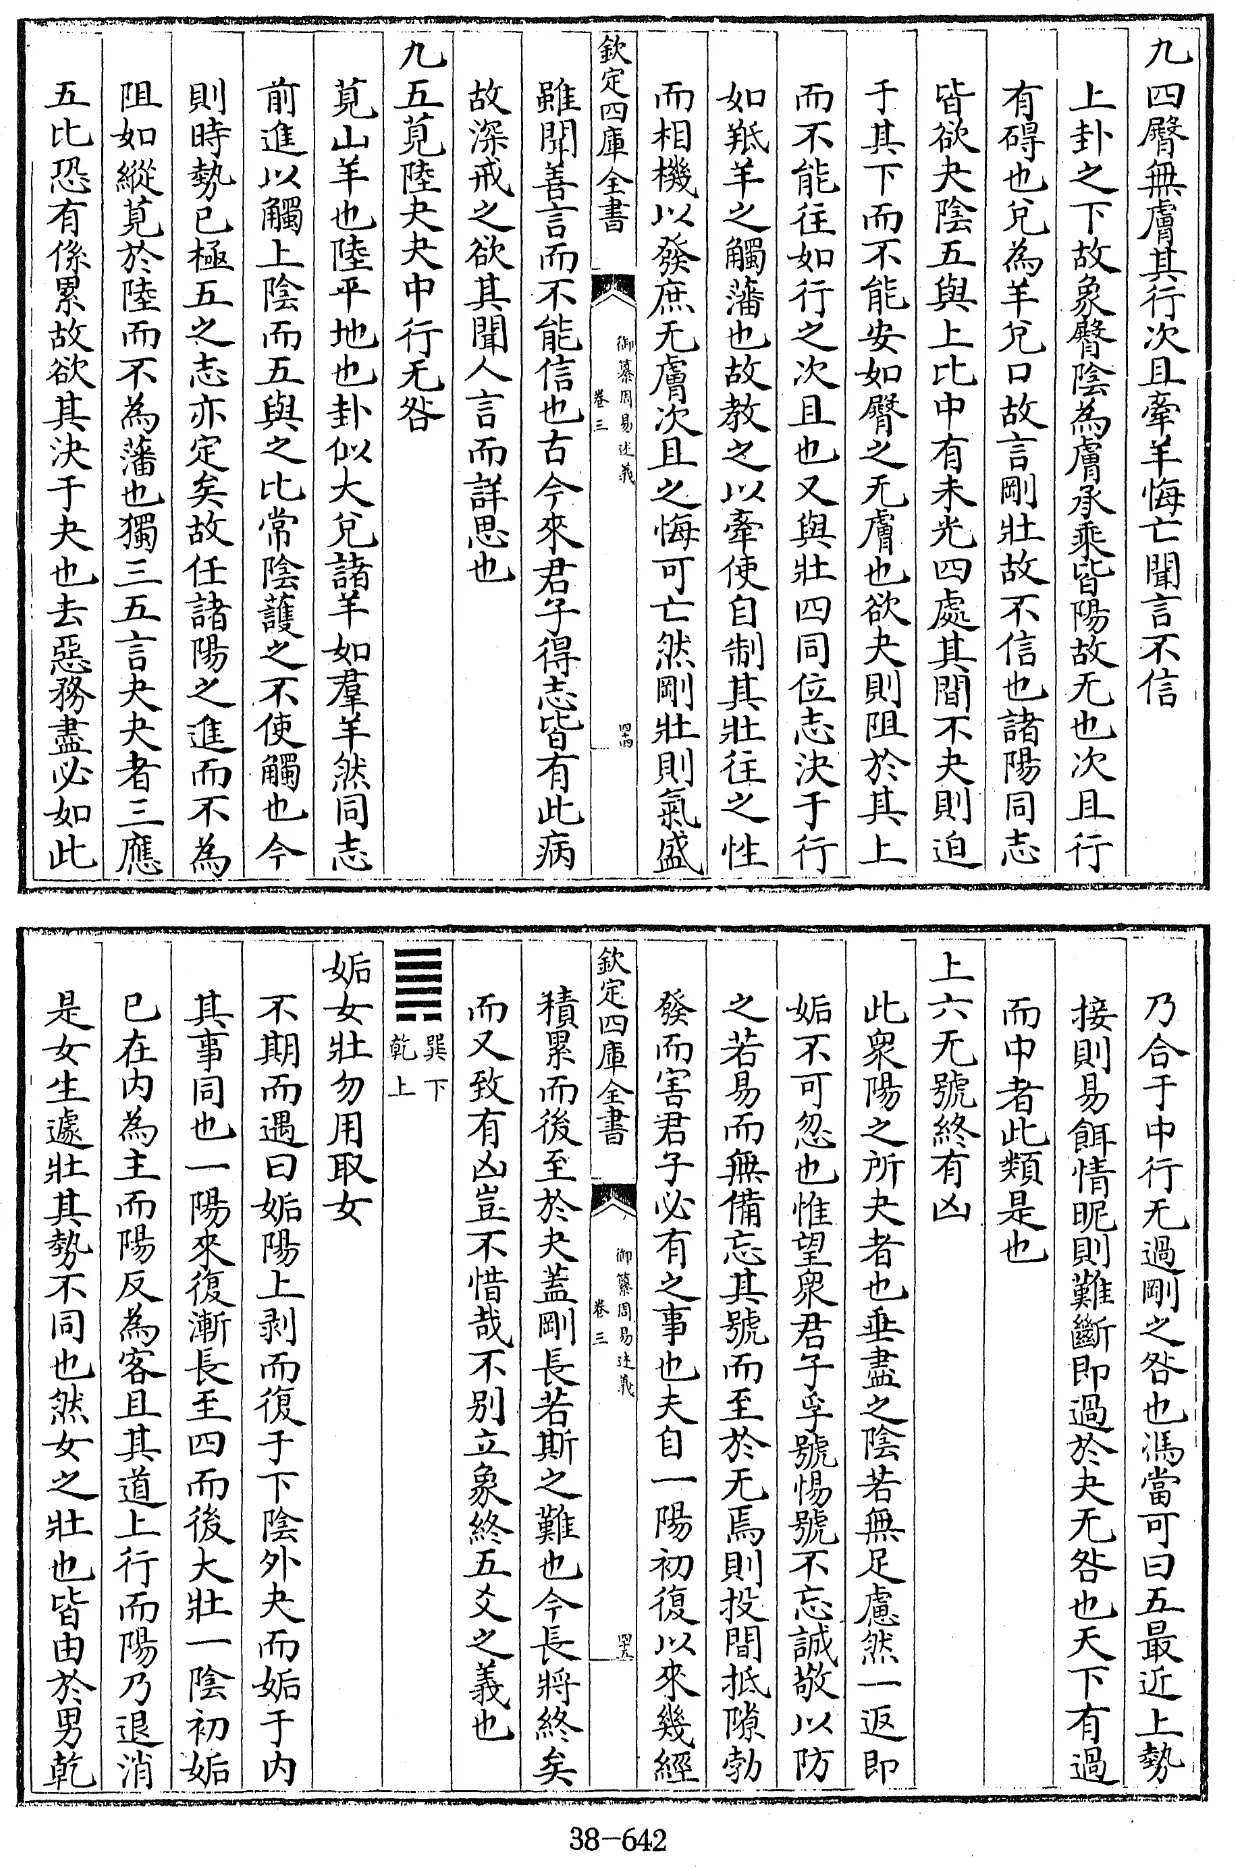 九四臀無膚其行次且牽羊悔亡聞言不信
上卦之下故象臀陰為膚承乘皆陽故无也次且行
有碍也兌為羊兌口故言剛壯故不信也諸陽同志
皆欲夬陰五與上比中有未光四處其間不夬則迫
于其下而不能安如臀之无膚也欲夬則阻於其上
而不能往如行之次且也又與壯四同位志決于行
如羝羊之觸藩也故教之以牽使自制其壯往之性
而相機以發庶无膚次且之悔可亡然剛壯則氣盛
欽定四庫全書
御纂周易述義
卷三
四十四
雖聞善言而不能信也古今來君子得志皆有此病
故深戒之欲其聞人言而詳思也
九五莧陸夬夬中行无咎
莧山羊也陸平地也卦似大兌諸羊如羣羊然同志
前進以觸上陰而五與之比常陰護之不使觸也今
則時勢已極五之志亦定矣故任諸陽之進而不為
阻如縱莧於陸而不為藩也獨三五言夬夬者三應
五比恐有係累故欲其決于夬也去惡務盡必如此
乃合于中行无過剛之咎也馮當可曰五最近上勢
接則易餌情昵則難斷即過於夬无咎也天下有過
而中者此類是也
上六无號終有凶
此衆陽之所夬者也垂盡之陰若無足慮然一返即
姤不可忽也惟望衆君子孚號惕號不忘誠敬以防
之若易而無備忘其號而至於无焉則投間抵隙勃
發而害君子必有之事也夫自一陽初復以來幾經
欽定四庫全書
御纂周易述義
卷三
四十五
積累而後至於夬蓋剛長若斯之難也今長將終矣
而又致有凶豈不惜哉不別立象終五爻之義也
巽下
乾上
姤女壯勿用取女
不期而遇曰姤陽上剥而復于下陰外夬而姤于内
其事同也一陽來復漸長至四而後大壯一陰初姤
已在内為主而陽反為客且其道上行而陽乃退消
是女生遽壯其勢不同也然女之壯也皆由於男乾
38-642